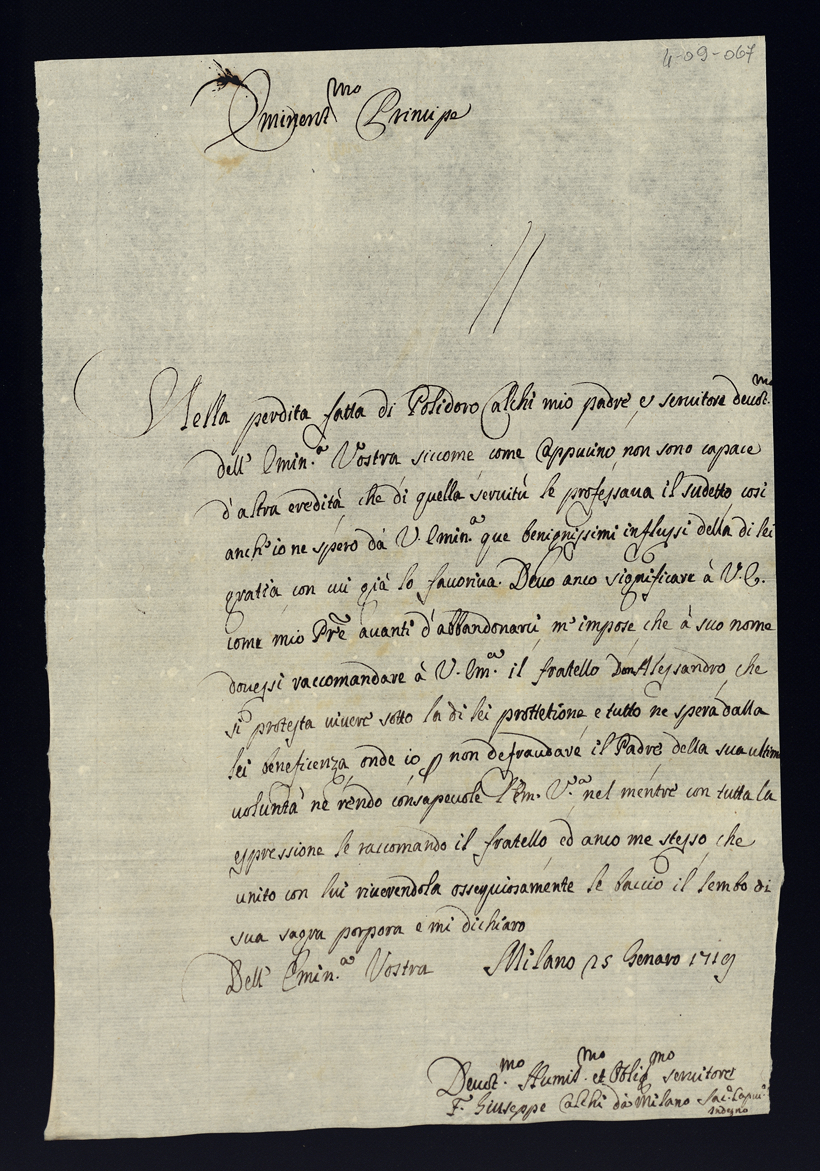 4-09-067
Eminent.mo Principe
Nella perdita fatta di Polidoro Calchi mio padre, e servitore devot.mo
dell' Emin.a Vostra siccome come Cappucino non sono capace
d'altra eredità che di quella servitù le professava il sudetto così
anch'io ne spero dà V. Emin.a que benignissimi influssi della di lei
gratia con cui già lo favoriva. Devo anco significare à V. E.
come mio Prẽ avanti d'abbandonarci m'impose che à suo nome
dovessi raccomandare à V. Em.a il fratello Don Alessandro che
si protesta vivere sotto la di lei prottetione e tutto ne spera dalla
lei beneficenza onde io p non defraudare il Padre della sua ultima
voluntà ne rendo consapevole l'Em. V.a nel mentre con tutta la
espressione le raccomando il fratello ed anco me stesso, che
unito con lui riverendola ossequiosamente le baccio il lembo di
sua sagra porpora e mi dichiaro
Dell' Emin.a Vostra Milano 25 Genaro 1719
Devot.mo Humil.mo et Oblig.mo servitore
F. Giuseppe Calchi dà Milano Sac.e Capuc.o
Indegno